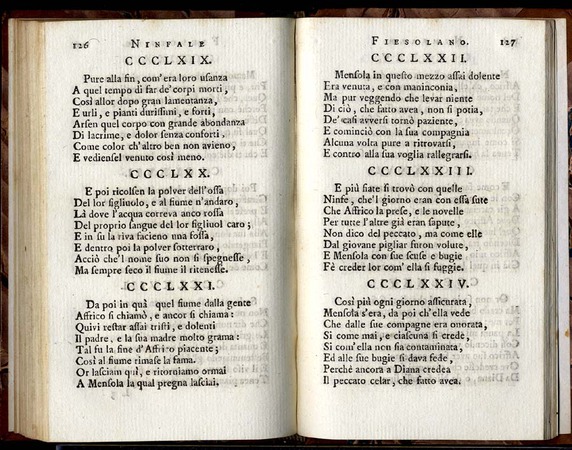 126 NINFALE
CCCLXIX.
Pure alla fin, com'era loro usanza
A quel tempo di far de' corpi morti,
Così allor dopo gran lamentanza,
E urli, e pianti durissimi, e forti,
Arsen quel corpo con grande abondanza
Di lacrime, e dolor senza conforti,
Come color ch'altro ben non avieno,
E vediensel venuto così meno.
CCCLXX.
E poi ricolsen la polver dell'ossa
Del lor figliuolo, e al fiume n'andaro,
Là dove l'acqua correva anco rossa
Del proprio sangue del lor figliuol caro;
E in su la riva facieno una fossa,
E dentro poi la polver sotterraro,
Acciò che'l nome suo non si spegnesse,
Ma sempre seco il fiume il ritenesse.
CCCLXXI.
Da poi in quà quel fiume dalla gente
Affrico si chiamò, e ancor si chiama:
Quivi restar assai tristi, e dolenti
Il padre, e la sua madre molto grama:
Tal fu la fine d'Affrico piacente;
Così al fiume rimase la fama.
Or lasciam quì, e ritorniamo ormai
A Mensola la qual pregna lasciai,
FIESOLANO. 127
CCCLXXII.
Mensola in questo mezzo assai dolente
Era venuta, e con maninconia,
Ma pur veggendo che levar niente
Di ciò, che fatto avea, non si potia,
De' casi avversi tornò paziente,
E cominciò con la sua compagnia
Alcuna volta pure a ritrovarsi,
E contro alla sua voglia rallegrarsi.
CCCLXXIII.
E più fiate si trovò con quelle
Ninfe, che'l giorno eran con essa sute
Che Affrico la prese, e le novelle
Per tutte l'altre già eran sapute,
Non dico del peccato, ma come elle
Dal giovane pigliar furon volute,
E Mensola con sue scuse e bugie
Fè creder lor com' ella si fuggie.
CCCLXXIV.
Così più ogni giorno assicurata,
Mensola s'era, da poi ch'ella vede
Che dalle sue compagne era onorata,
Sì come mai, e ciascuna si crede,
Sì com'ella non sia contaminata,
Ed alle sue bugie si dava fede,
Perchè ancora a Diana credea
Il peccato celar, che fatto avea.